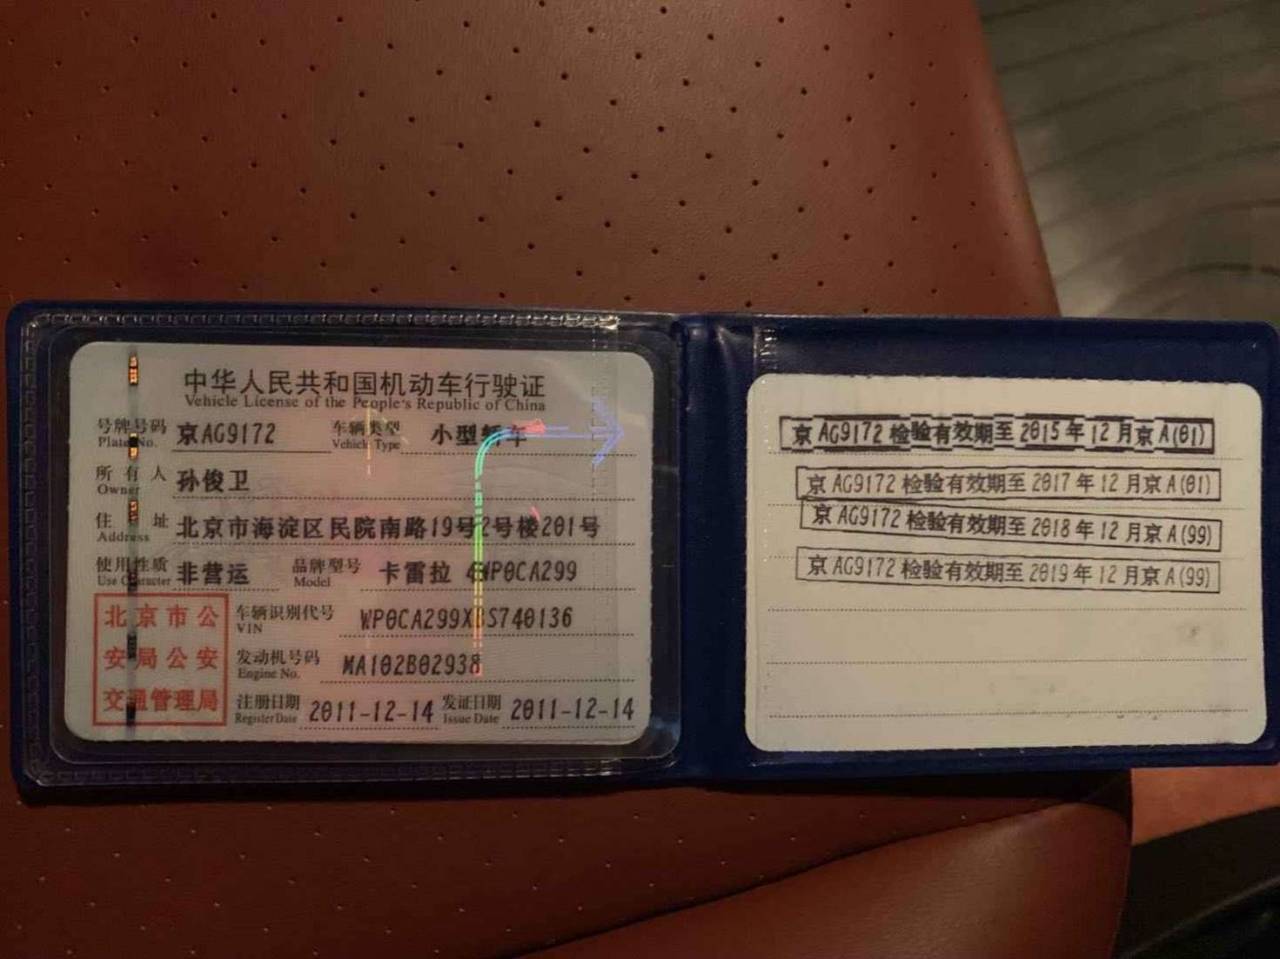 中华人民共和国机动车行驶证
Vehicle License of the People's Republic of China
号牌号码 京AG9172 车辆类型 小型轿车
Plate No. Vehicle Type
所有人 孙俊卫
Owner
住址 北京市海淀区民院南路19号2号楼201号
Address
使用性质 非营运 品牌型号 卡雷拉
Use Character Model
北京市公
安局公安
交通管理局
车辆识别代号
VIN
发动机号码 MA102B02938
Engine No.
注册日期 2011-12-14 发证日期 2011-12-14
Register Date Issue Date
京AG9172检验有效期至2015年12月京A(01)
京AG9172检验有效期至2017年12月京A(01)
京AG9172检验有效期至2018年12月京A(99)
京AG9172检验有效期至2019年12月京A(99)